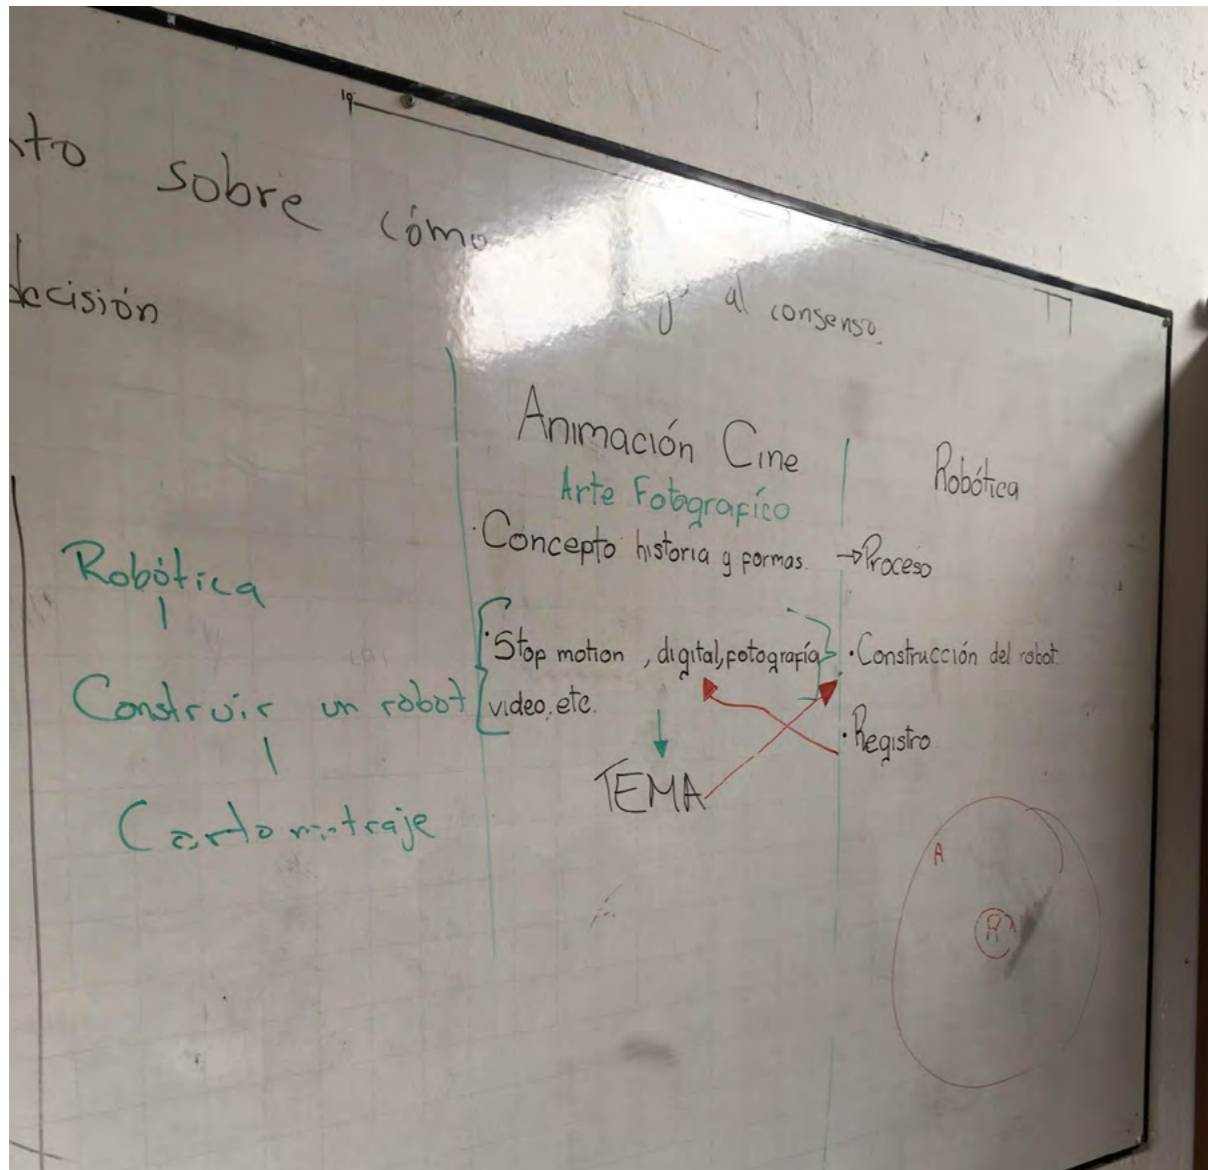 sobre cómo
decisión
al consenso.
Robótica
Construir un robot
Cortometraje
Animación Cine
Arte Fotografíco
·Concepto historia y formas.
·Stop motion, digital, fotografía
video, etc.
TEMA
Robótica
→Proceso
·Construcción del robot.
·Registro
A
R